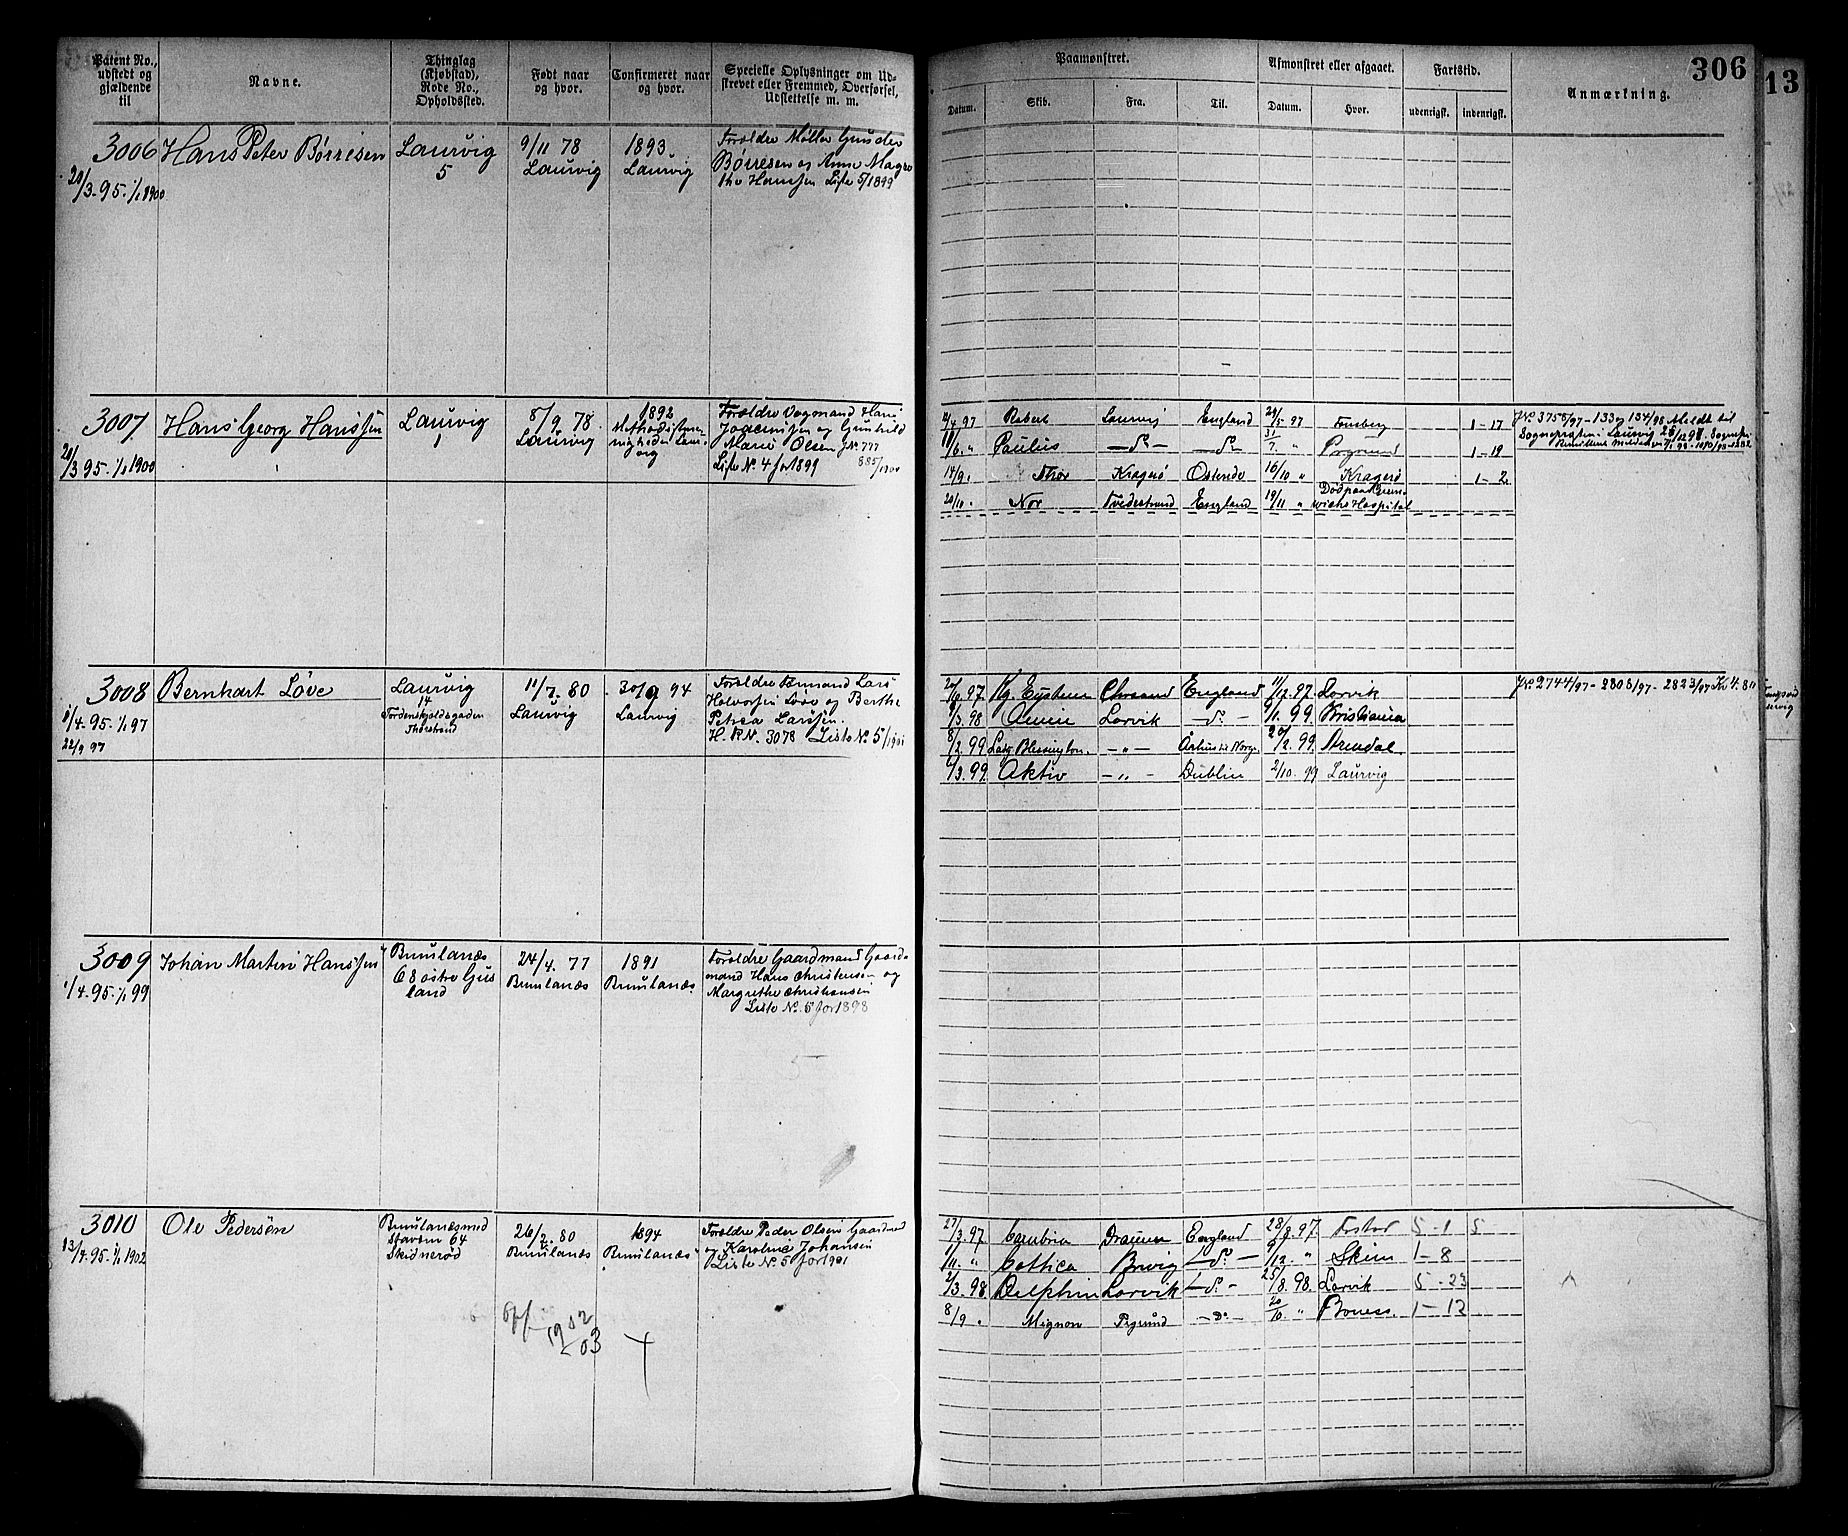 Patent No., udstedt og gjældende til
Navne.
Thinglag (Kjøbstad), Rode No., Opholdssted.
Født naar og hvor.
Confirmeret naar og hvor.
Specielle Oplysninger om Udstrevet eller Fremmed, Overførsel, Udslettelse m. m.
Paamønstret.
Afmønstret eller afgaaet.
Fartstid.
306
13
Datum.
Skib.
Fra.
Til.
Datum.
Hvor.
udenrigsk.
indenrigsk.
Anmærkning.
3006
20/3.95.-1/1 1900
Hans Peter Børresen
Laurvig
5
9/11 78
Laurvig
1893.
Laurvig
Forældre Møller Gunder
Børresen og Anne Magre
the Hansen Liste 5/1899
3007
20/3.95.-1/1 1900
Hans Georg Hanssen
Laurvig
1
8/9.78.
Laurvig
1892
Forældre Vognmand Hans
Joacimsen og Gunhild
Marie Olsen J.No 777
Liste No. 4 for 1899 885/1900
4/4.97 Robert Laurvig England 24/5 97 Tønsberg 1-17
11/6. " Paulus —d°— —d°— 31/7. " Porgrund 1-19
14/9. Thor Kragerø Ostende 16/10 " Kragerø 1-2
20/10. Nor Tvedestrand England 19/11 " Død paa Green-
wichs Hospital
J.No 3758/97-133 og 134/98 Meldt til
Sognepresten i Laurvig 26/1298.
3008
1/4.95.-1/1 97
22/9 97
Bernhart Løve
Laurvig
14
Tordenskjoldsgaden
Thorstrand
11/7. 80
Laurvig
30/9 94
Laurvig
Forældre Formand Lars
Halvorsen Løve og Berthe
Petrea Larssen.
H. R No. 3078 Liste No. 5/1901
Kg. Eystein Chrsand England 11/12.97. Larvik
9/3.98 Larvik —d°— 9/1. 99 Kristiania
8/2.99 Lady Blessington —"— Århus til Norge 20/2.99. Arendal
1/3.99. Aktiv —"— Dublin 2/10.99 Laurvig
J.No 2744/97-2808/97-2823/97
3009
1/4.95.-1/1 99
Johan Martin Hanssen
Brunlanæs
68 østre Gus
land
24/4. 77
Brunlanæs
1891
Brunlanæs.
Forældre Gaardmand Gaard-
mand Hans Christensen og
Margrethe Christiansen
Liste No. 5 for 1898
5
3010
13/4.95.-1/1 1902
Ole Pedersen
Brunlanæs med
Stavern 64
Skidnerød
26/2. 80
Brunlanæs
1894
Brunlanæs
Forældre Peder Olsen Gaardmd
og Karoline Johansen
Liste No. 5 for 1901
27/3.97. Cambria Drammen England 28/8.97. 5-1 5
9/11. " Cottica Brevig —d°— 9/12. " Skien 1-8
2/3.98. Delphin Larvik —d°— 25/8.98. Larvik 5-23
8/9. Mignon Pgrund —d°— 20/10 " Boness. 1-12
1902
03